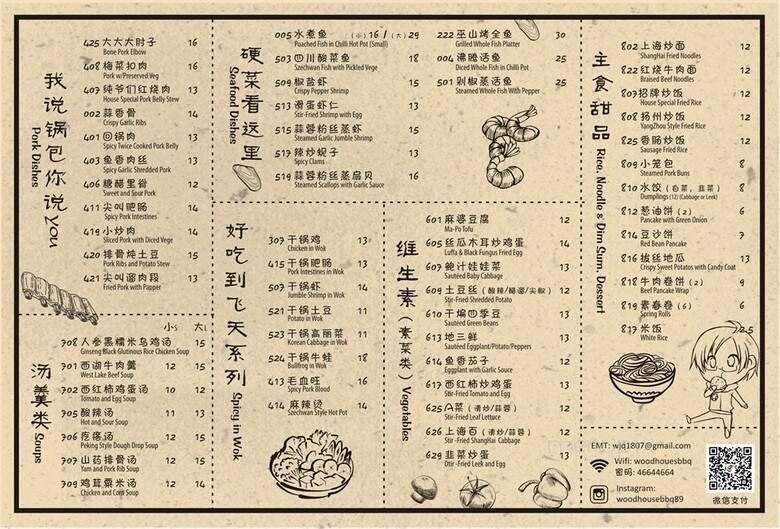 我说锅包你说You
Pork Dishes
425 大大大肘子 16
Bone Pork Elbow
408 梅菜扣肉 16
Pork w/Preserved Veg
407 纯爷们红烧肉 13
House Special Pork Belly Stew
002 蒜香骨 14
Crispy Garlic Ribs
401 回锅肉 12
Spicy Twice Cooked Pork Belly
403 鱼香肉丝 13
Spicy Garlic Shredded Pork
406 糖醋里脊 12
Sweet and Sour Pork
411 尖叫肥肠 14
Spicy Pork Intestines
419 小炒肉 14
Sliced Pork with Diced Vege
420 排骨炖土豆 15
Pork Ribs and Potato Stew
421 尖叫溜肉段 13
Fried Pork with Papper
汤羹类
Soups
小s 大L
308 人参黑糯米乌鸡汤 15
Ginseng Black Glutinous Rice Chicken Soup
301 西湖牛肉羹 12 15
West Lake Beef Soup
302 西红柿鸡蛋汤 10 12
Tomato and Egg Soup
305 酸辣汤 11 13
Hot and Sour Soup
306 疙瘩汤 12 12
Peking Style Dough Drop Soup
307 山药排骨汤 12 15
Yam and Pork Rib Soup
309 鸡茸粟米汤 12 14
Chicken and Corn Soup
硬菜看这里
Seafood Dishes
005 水煮鱼 (小) 16 / (大) 29
Poached Fish in Chilli Hot Pot (Small)
503 四川酸菜鱼 16
Szechwan Fish with Pickled Vege
509 椒盐虾 16
Crispy Pepper Shrimp
513 滑蛋虾仁 13
Stir-Fried Shrimp with Egg
515 蒜蓉粉丝蒸虾 15
Steamed Garlic Jumble Shrimp
517 辣炒蚬子 13
Spicy Clams
519 蒜蓉粉丝蒸扇贝 16
Steamed Scallops with Garlic Sauce
222 巫山烤全鱼 30
Grilled Whole Fish Platter
004 沸腾活鱼 25
Diced Whole Fish in Chilli Pot
501 剁椒蒸活鱼 25
Steamed Whole Fish With Pepper
好吃到飞天系列
Spicy in Wok
307 干锅鸡 13
Chicken in Wok
415 干锅肥肠 15
Pork Intestines in Wok
507 干锅虾 14
Jumble Shrimp in Wok
521 干锅土豆 11
Potato in Wok
523 干锅高丽菜 11
Korean Cabbage in Wok
524 干锅牛蛙 18
Bullfrog in Wok
413 毛血旺 16
Spicy Pork Blood
414 麻辣烫 14
Szechwan Style Hot Pot
维生素(素菜类)
Vegetables
601 麻婆豆腐 12
Ma-Po Tofu
605 丝瓜木耳炒鸡蛋 14
Luffa & Black Fungus Fried Egg
607 鲍汁娃娃菜 13
Sauteed Baby Cabbage
609 土豆丝 (酸辣/醋溜/尖椒) 12
Stir-Fried Shredded Potato
610 干煸四季豆 13
Sautéed Green Beans
613 地三鲜 13
Sautéed Eggplant/Potato/Peppers
614 鱼香茄子 12
Eggplant with Garlic Sauce
617 西红柿炒鸡蛋 13
Stir-Fried Tomato and Egg
625 A菜 (清炒/蒜蓉) 12
Stir-Fried Leaf Lettuce
626 上海白 (清炒/蒜蓉) 12
Stir-Fried ShangHai Cabbage
629 韭菜炒蛋 13
Dtir -Fried Leek and Egg
主食甜品
Rice, Noodle & Dim Sum, Dessert
802 上海炒面 12
ShangHai Fried Noodles
822 红烧牛肉面 12
Braised Beef Noodles
807 招牌炒饭 12
House Special Fried Rice
808 扬州炒饭 12
YangZhou Style Fried Rice
825 香肠炒饭 12
Sausage Fried Rice
809 小笼包 8
Steamed Pork Buns
810 水饺 (白菜,韭菜) 8
Dumplings (12) (Cabbage or Leek)
812 葱油饼 (2) 6
Pancake with Green Onion
814 豆沙饼 7
Red Bean Pancake
816 拔丝地瓜 13
Crispy Sweet Potatos with Candy Coat
818 牛肉卷饼 (2) 9
Beef Pancake Wrap
819 素春卷 (6) 6
Spring Rolls
817 米饭 2.5
White Rice
EMT: wjq1807@gmail.com
Wifi: woodhousebbq
密码: 46644664
Instagram:
woodhousebbq89
微信支付